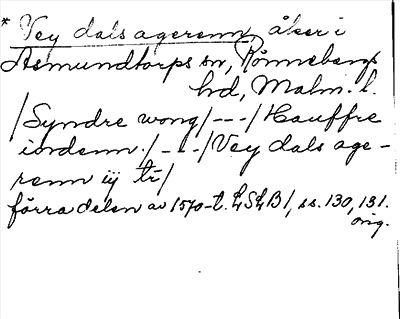 * Vey dals agerenn, åker i
Asmundtorps sn, Rönnebergs
hd, Malm. l.
/Syndre wong/---/Hauffre
iordenn./---/Vey dals age-
renn iij tr/
förra delen av 1570-t. LSLB1, ss. 130, 131.
orig.